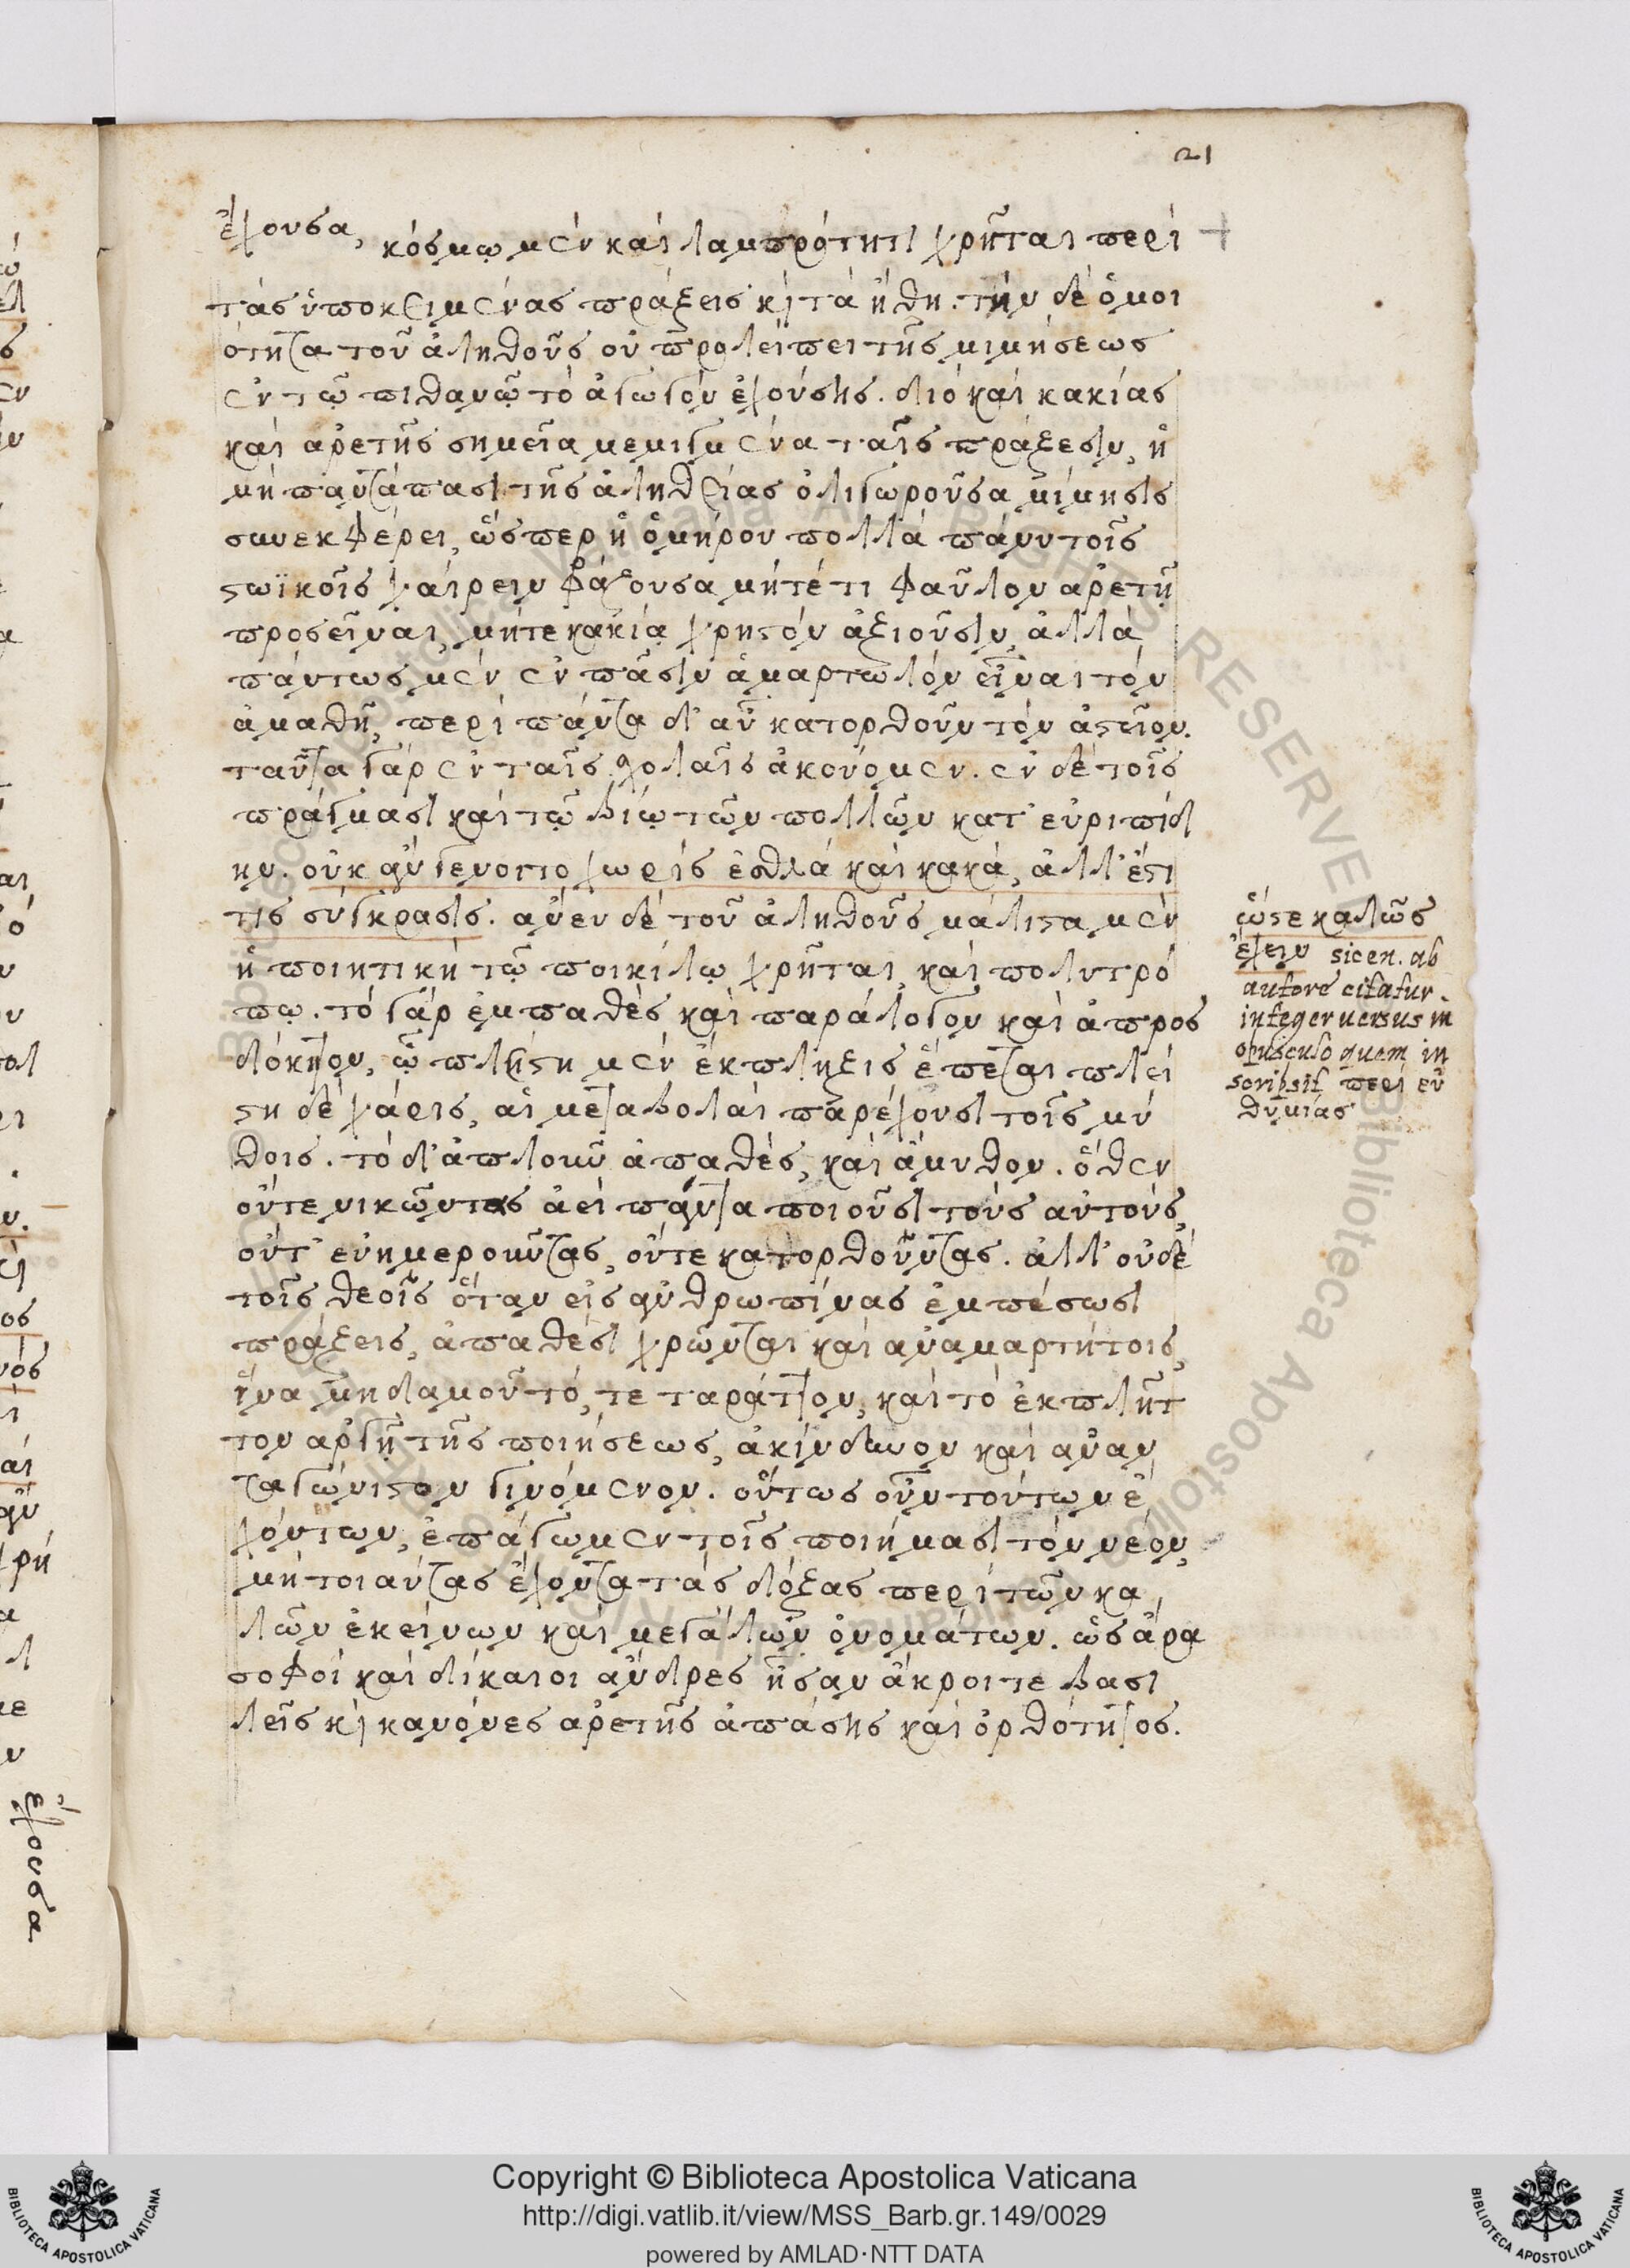 21
ἔχουσα, κόσμῳ μὲν καὶ λαμπρότητι χρῆται περὶ
τὰς ὑποκειμένας πράξεις κὶ τὰ ἤθη. τὴν δὲ ὁμοι
ότητα τοῦ ἀληθοῦς οὐ προλείπει τῆς μιμήσεως
ἐν τῷ πιθανῷ τὸ ἀγωγὸν ἐχούσης. διὸ καὶ κακίας
καὶ ἀρετῆς σημεῖα μεμιγμένα ταῖς πράξεσιν, ἡ
μὴ παντάπασι τῆς ἀληθείας ὀλιγωροῦσα μίμησις
συνεκφέρει, ὥσπερ ἡ ὁμήρου πολλὰ πάνυ τοῖς
στωϊκοῖς χαίρειν φράζουσα μήτέ τι φαῦλον ἀρετῇ
προσεῖναι, μήτε κακίᾳ χρηστὸν ἀξιοῦσιν, ἀλλὰ
πάντως μὲν ἐν πᾶσιν ἁμαρτωλὸν εἶναι τὸν
ἀμαθῆ, περὶ πάντα δ' αὖ κατορθοῦν τὸν ἀστεῖον.
ταῦτα γὰρ ἐν ταῖς σχολαῖς ἀκούομεν. ἐν δὲ τοῖς
πράγμασι καὶ τῷ βίῳ τῶν πολλῶν κατ' εὐριπίδ
ην. οὐκ ἂν γένοιτο χωρὶς ἐσθλὰ καὶ κακά, ἀλλ' ἔστι
τις σύγκρασις. ἄνευ δὲ τοῦ ἀληθοῦς μάλιστα μὲν
ἡ ποιητικὴ τῷ ποικίλῳ χρῆται, καὶ πολυτρό
πῳ. τὸ γὰρ ἐμπαθὲς καὶ παράλογον καὶ ἀπροσ
δόκητον, ᾧ πλείστη μὲν ἔκπληξις ἕπεται πλεί
στη δὲ χάρις, αἱ μεταβολαὶ παρέχουσι τοῖς μύ
θοις. τὸ δ' ἁπλοῦν ἀπαθές, καὶ ἄμυθον. ὅθεν
οὔτε νικῶντας ἀεὶ πάντα ποιοῦσι τοὺς αὐτούς,
οὔτ' εὐημεροῦντας, οὔτε κατορθοῦντας. ἀλλ' οὐδὲ
τοῖς θεοῖς ὅταν εἰς ἀνθρωπίνας ἐμπέσωσι
πράξεις, ἀπαθέσι χρῶνται καὶ ἀναμαρτήτοις,
ἵνα μηδαμοῦ τό, τε ταράττον, καὶ τὸ ἐκπλῆτ
τον ἀργῇ τῆς ποιήσεως, ἀκίνδυνον καὶ ἀναν
ταγώνιστον γινόμενον. οὕτως οὖν τούτων ἐ
χόντων, ἐπάγωμεν τοῖς ποιήμασι τὸν νέον,
μὴ τοιαύτας ἔχοντα τὰς δόξας περὶ τῶν κα
λῶν ἐκείνων καὶ μεγάλων ὀνομάτων. ὡς ἄρα
σοφοὶ καὶ δίκαιοι ἄνδρες ἦσαν ἄκροι τε βασι
λεῖς κὶ κανόνες ἀρετῆς ἁπάσης καὶ ὀρθότητος.
ὥστε καλῶς
ἔχειν sic en. ab
autore citatur.
integer uersus in
opusculo quem in
scripsit περὶ εὐ
θυμίας
ἔχουσα
Copyright © Biblioteca Apostolica Vaticana
http://digi.vatlib.it/view/MSS_Barb.gr.149/0029
powered by AMLAD·NTT DATA
BIBLIOTECA APOSTOLICA VATICANA
BIBLIOTECA APOSTOLICA VATICANA